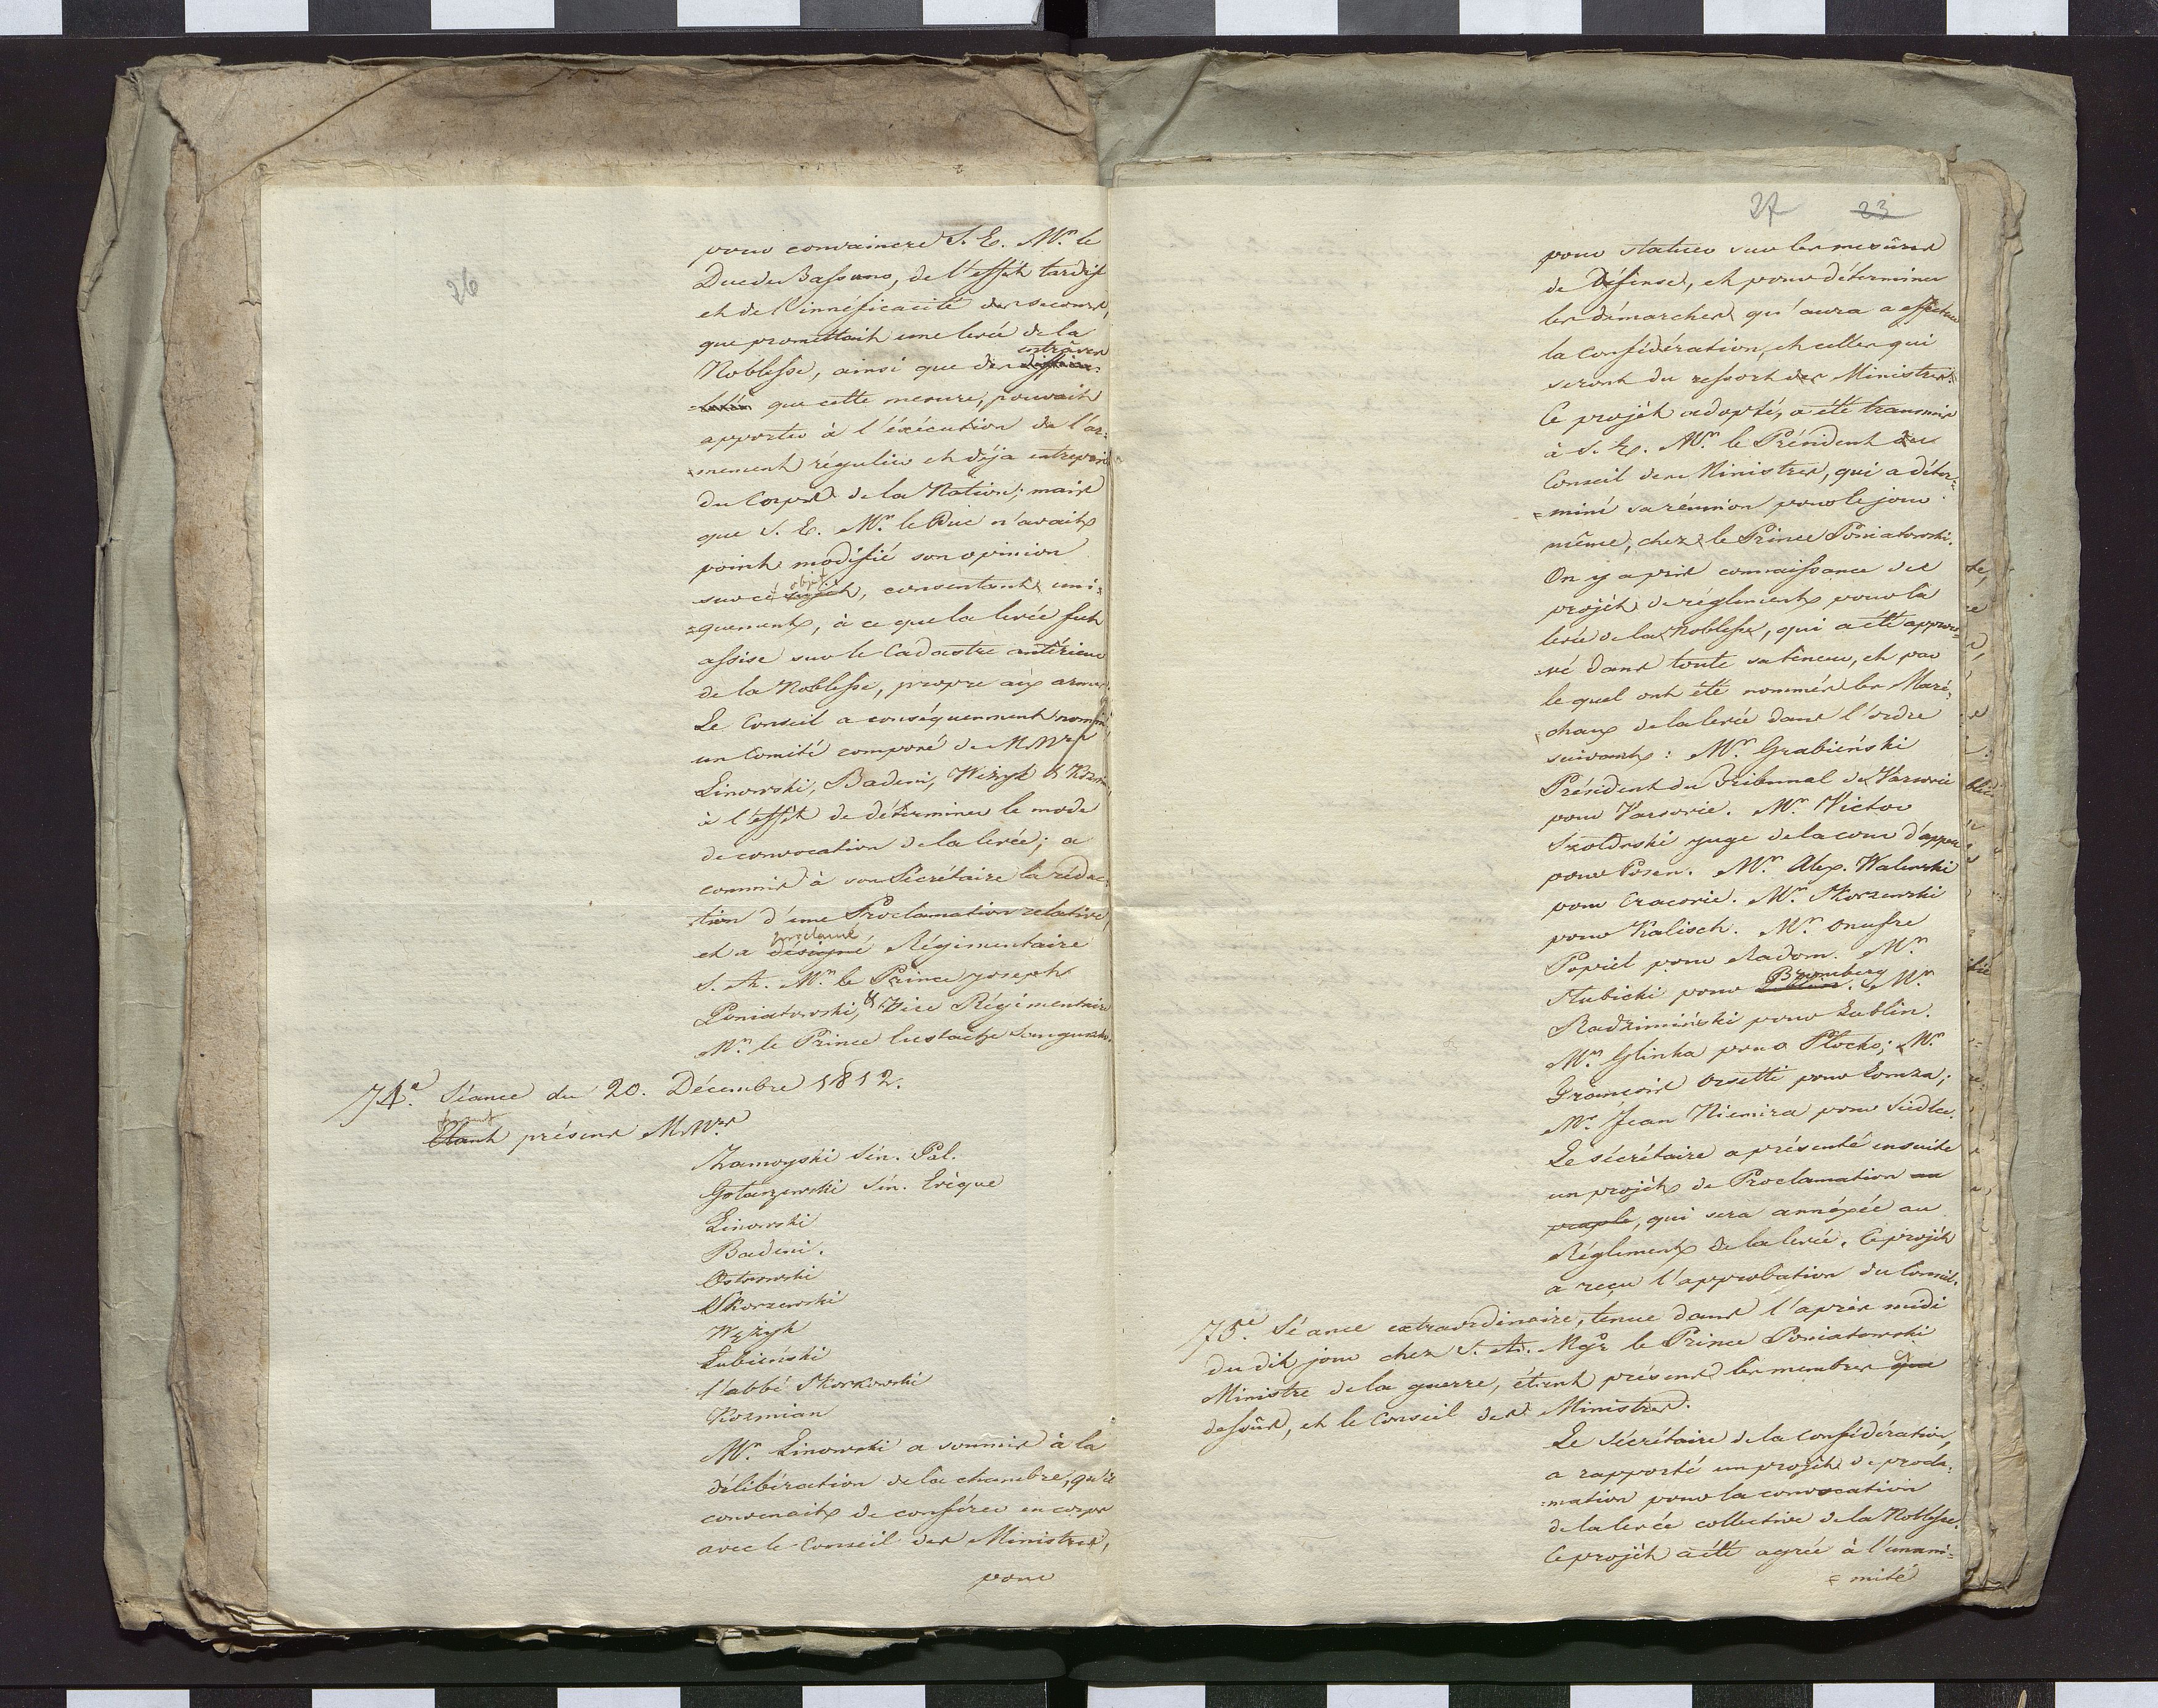 26
pour convaincre S. E. Mr. le
Duc de Bassano, de l'effét tardif
et de l'innéficacité des secours,
que promettait une levée de la
Noblesse, ainsi que des
entrâves
que cette mesure, pouvait
apporter à l'éxécution de l'ar=
=mement régulier et déja entrepris
du Corps de la Nation; mais
que S. E. Mr. le Duc n'avait
point modifié son opinion
objet
sur cé sujét, consentant uni=
=quement, à ce que la levée fut
assise sur le Cadastre antérieur
de la Noblesse, propre aux armes.
Le Conseil a conséquemment nommé,
un Comité composé de M.Mrs
Linowski, Badeni, Wężyk & Kozmian,
à l'effét de détérminer le mode
de convocation de la levée; a
commis à son Sécrétaire la rédac=
=tion d'une Proclamation relative,
proclamé
et a désigné Régimentaire
S. A. Mr. le Prince Joseph
Poniatowski, & Vice Régimentaire
Mr. le Prince Eustache Sanguszko.
74e. Séance du 20. Décembre 1812.
furent
Etant présens M.Mrs
Zamoyski Sén. Pal.
Gołaszewski Sén. Evêque
Linowski
Badeni.
Ostrowski
Skorzewski
Wężyk
Łubieński
l'abbé Skorkowski
Kozmian
Mr. Linowski a soumis à la
délibération de la chambre, qu'il
convenait de conférer en corps
avec le Conseil des Ministres,
pour
27 23
pour statuer sur les mesûres
de Défense, et pour déterminer
les démarches qu'aura a effectuer
la confédération, et celles qui
seront du ressort des Ministres.
Ce projét adopté, a été transmis
à S. E. Mr. le Président du
Conseil des Ministres, qui a déter=
=miné sa réunion pour le jour
même, chez le Prince Poniatowski.
On y a pris connaissance du
projét de réglement pour la
levée de la Noblesse, qui a été approu=
=vé dans toute sa téneur, et par
le quel ont été nommés les Maré=
=chaux de la levée dans l'ordre
suivant: Mr. Grabieński
Président du Tribunal de Varsovie
pour Varsovie. Mr. Victor
Szołdrski juge de la cour d'appel
pour Posen. Mr. Alex. Walewski
pour Cracovie. Mr. Skorzewski
pour Kalisch. Mr. Onufre
Popiel pour Radom. Mr.
Bromberg
Słubicki pour Lublin. Mr.
Radzimiński pour Lublin.
Mr. Glinka pour Płock; Mr.
François Orsetti pour Lomza;
Mr. Jean Niemira pour Siedlce.
Le sécrétaire a présenté ensuite
un projét de Proclamation au
peuple, qui sera annéxée au
Réglement de la levée. Ce projét
a reçu l'approbation du Conseil.
75e. Séance extraordinaire, tenue dans l'après midi
du dit jour chez S. A. Mgr. le Prince Poniatowski
Ministre de la guerre, étant présens les membres que
dessûs, et le Conseil des Ministres.
Le Sécrétaire de la Confédération,
a rapporté un projét de procla=
=mation pour la convocation
de la levée collective de la Noblesse.
Ce projét a été agréé à l'unani=
=mité